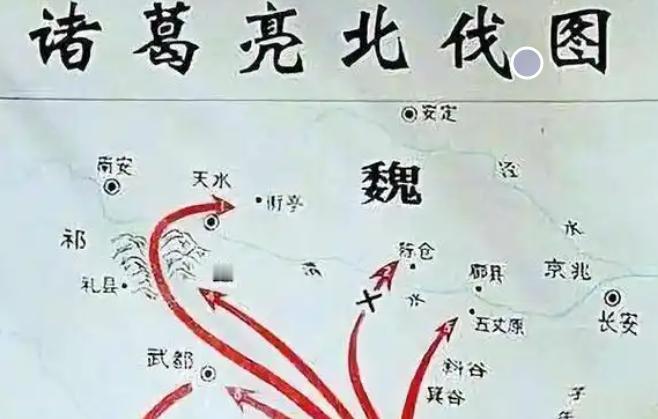 诸葛亮北伐图
安定
南安
天水
魏
泾
街亭
水
祁
陈仓
渭
郿县
京兆
礼县
水
长安
五丈原
武都
斜谷
箕谷
子
午